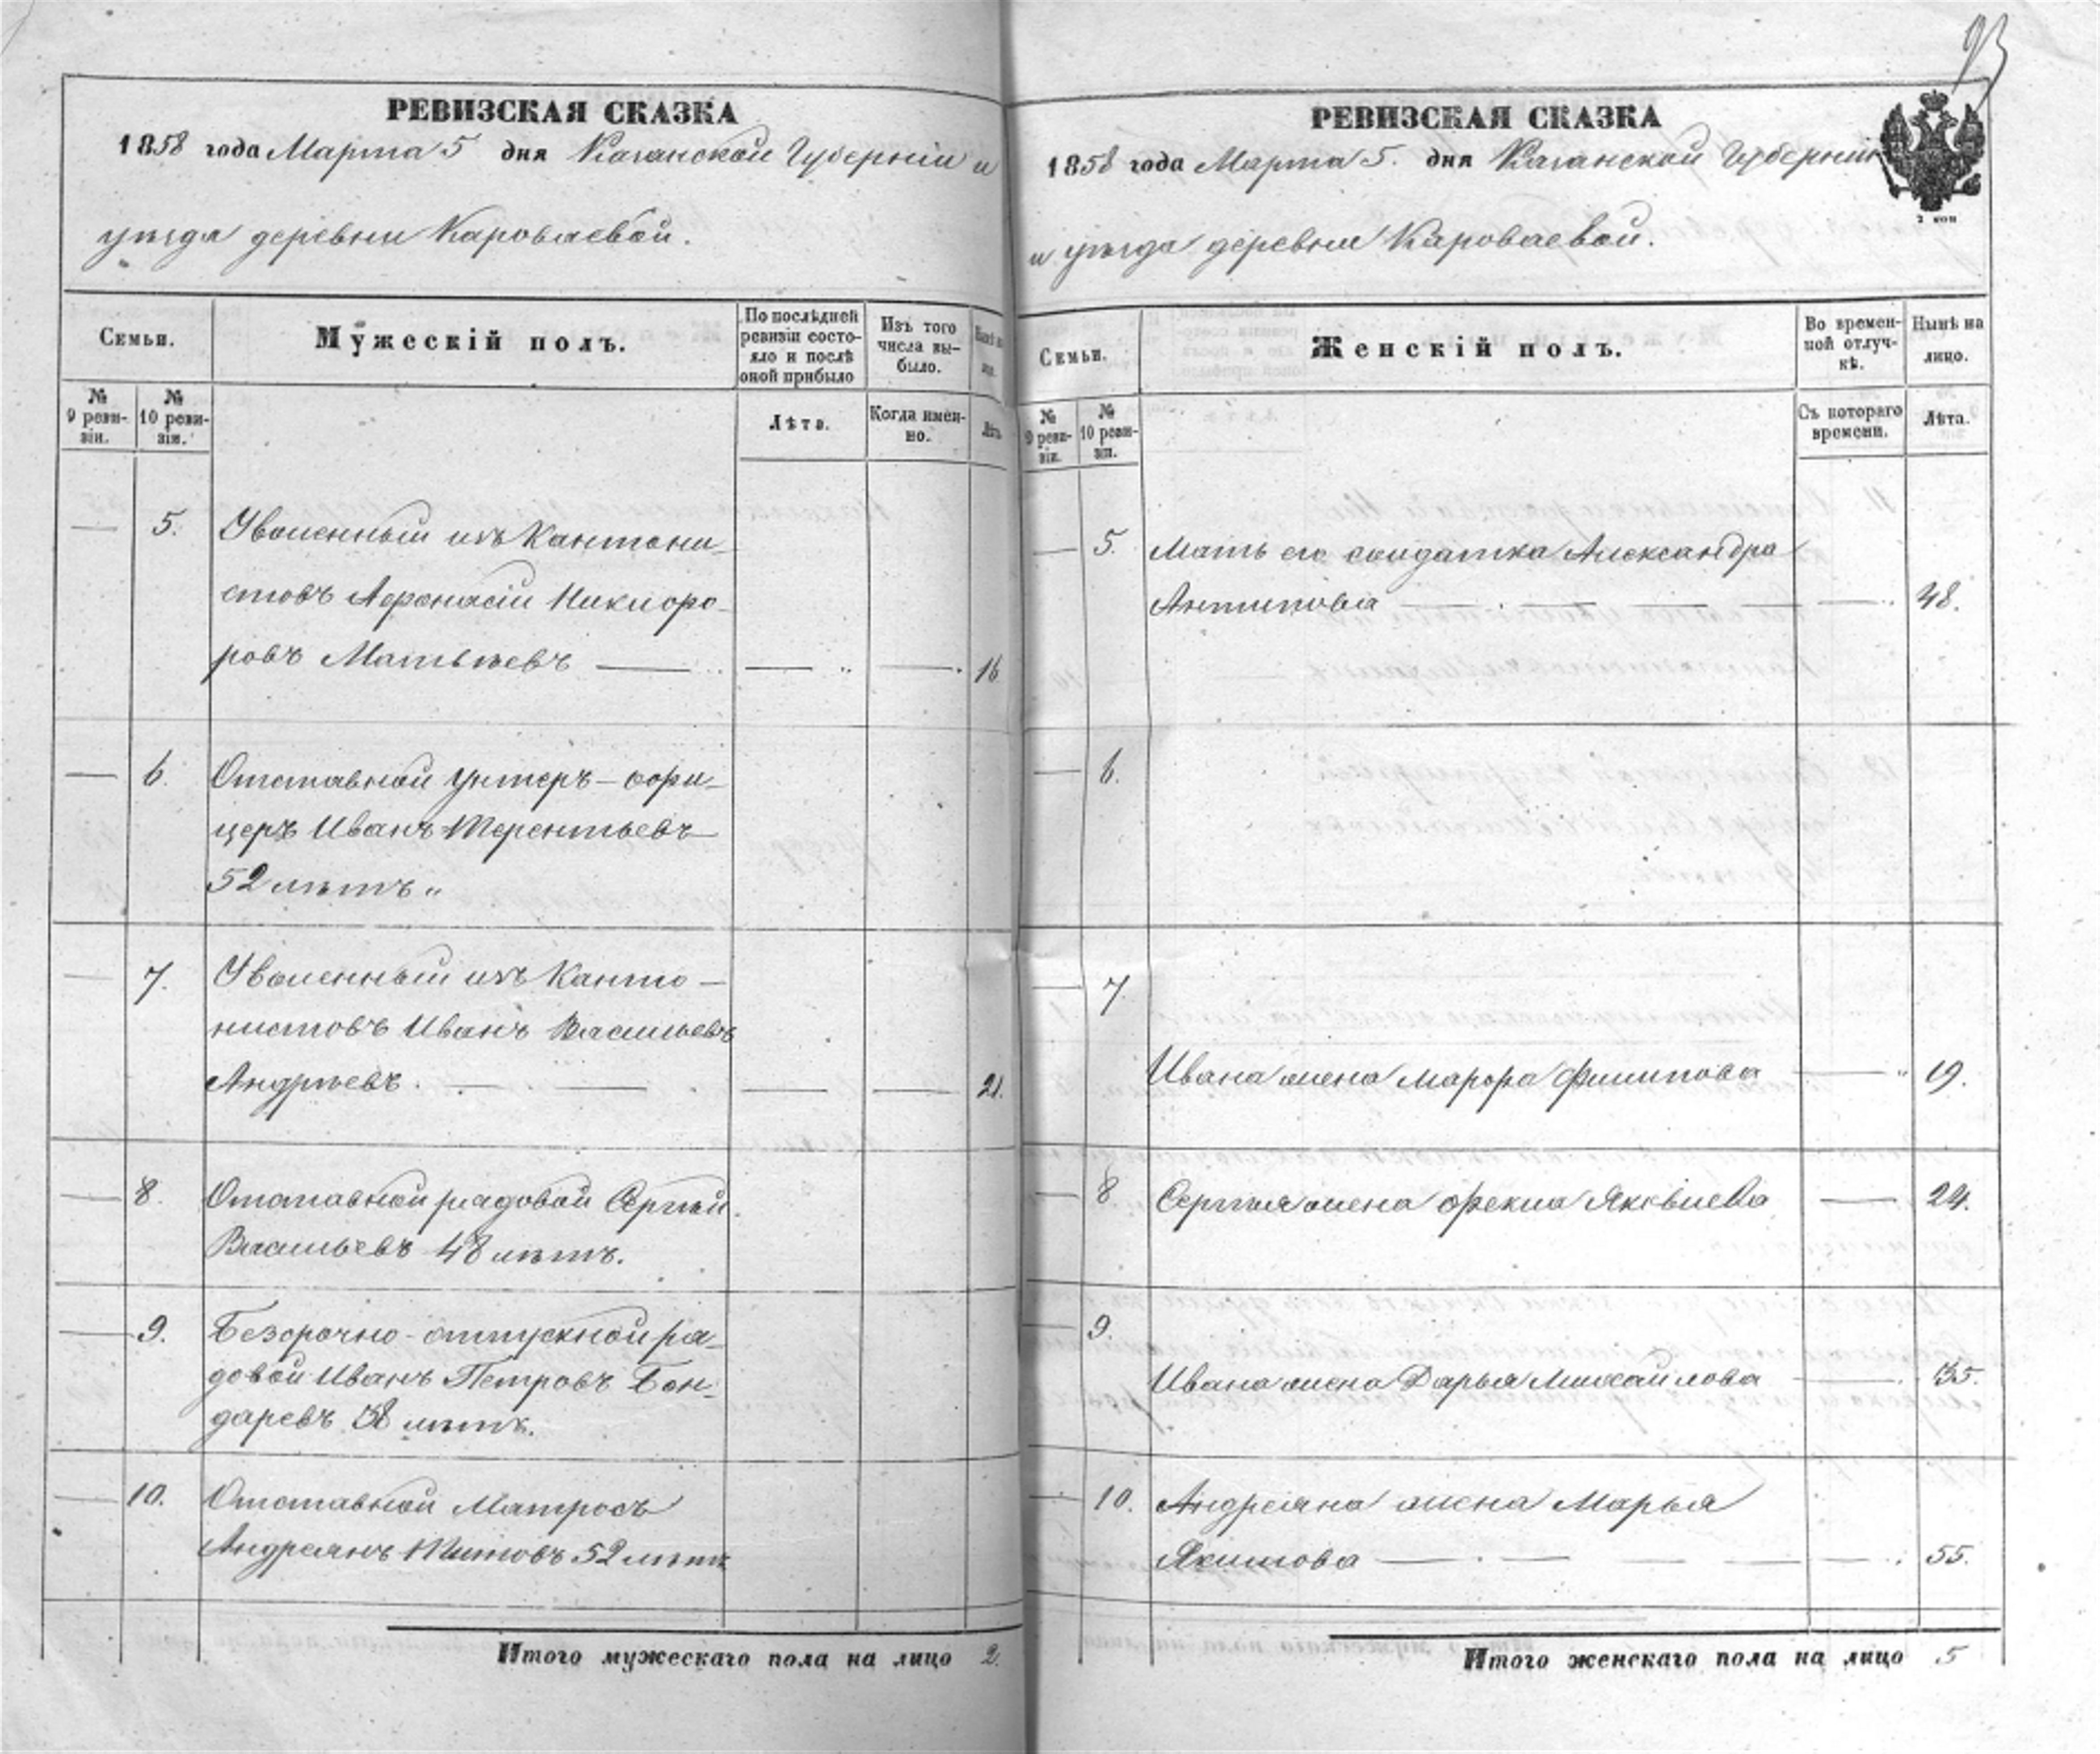 93
РЕВИЗСКАЯ СКАЗКА
1858 года Марта 5 дня Казанской Губерніи и
уѣзда деревни Кароваевой.
Семьи.
Мужескій полъ.
По послѣдней ревизіи состояло и послѣ оной прибыло
Изъ того числа выбыло.
№ 9 ревизіи.
№ 10 ревизіи.
Лѣта.
Когда именно.
Лѣта
— 5. Уволенный изъ Кантони-
стовъ Афонасій Никифо-
ровъ Матвѣевъ — — — 16
— 6. Отставной унтеръ-офи-
церъ Иванъ Терентьевъ
52 лѣтъ
— 7. Уволенный изъ Канто-
нистовъ Иванъ Васильевъ
Андрѣевъ. — — — — 21.
— 8. Отставной рядовой Сергѣй
Васильевъ 48 лѣтъ.
— 9. Безсрочно-отпускной ря-
довой Иванъ Петровъ Бон-
даревъ 38 лѣтъ.
— 10. Отставной Матросъ
Андреянъ Титовъ 52 лѣтъ
Итого мужескаго пола на лицо 2.
РЕВИЗСКАЯ СКАЗКА
1858 года Марта 5. дня Казанской Губерніи
и уѣзда деревни Кароваевой.
2 коп
Семьи.
Женскій полъ.
Во временной отлучкѣ.
Нынѣ на лицо.
№ 9 ревизіи.
№ 10 ревизіи.
Съ котораго времени.
Лѣта.
— 5. Мать его солдатка Александра
Антипова — — — — — 48.
— 6.
— 7.
Ивана жена Марфа Филипова — 19.
— 8. Сергѣя жена Фекла Яковлева — 24.
— 9.
Ивана жена Дарья Михайлова — 35.
— 10. Андреяна жена Марья
Якимова — — — — — 55.
Итого женскаго пола на лицо 5